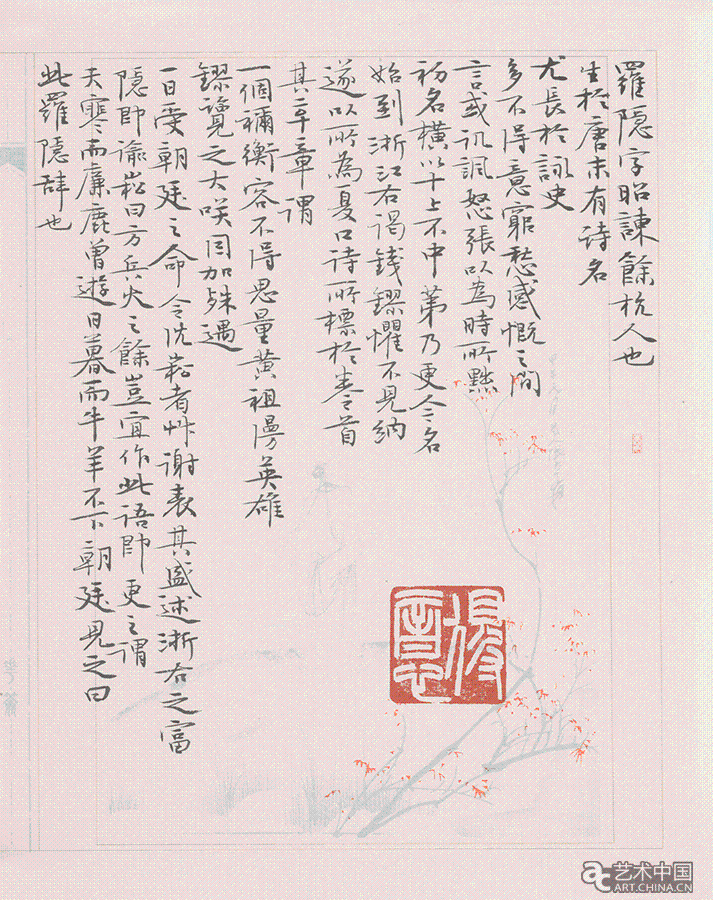 羅隱字昭諫餘杭人也
生於唐末有詩名
尤長於詠史
多不得意窮愁感慨之間
言或譏諷怒張以為時所黜
初名橫以十上不中第乃更今名
始到浙江右謁錢鏐懼不見納
遂以所為夏口詩所標於卷首
其卒章謂
一個禰衡容不得思量黃祖謾英雄
鏐覽之大咲因加殊遇
一日受朝廷之命令沈崧者艸謝表其盛述浙右之富
隱即諭崧曰方兵火之餘豈宜作此語即更之謂
天寒而麋鹿曾遊日暮而牛羊不下朝廷見之曰
此羅隱辞也
艺术中国
ART.CHINA.CN